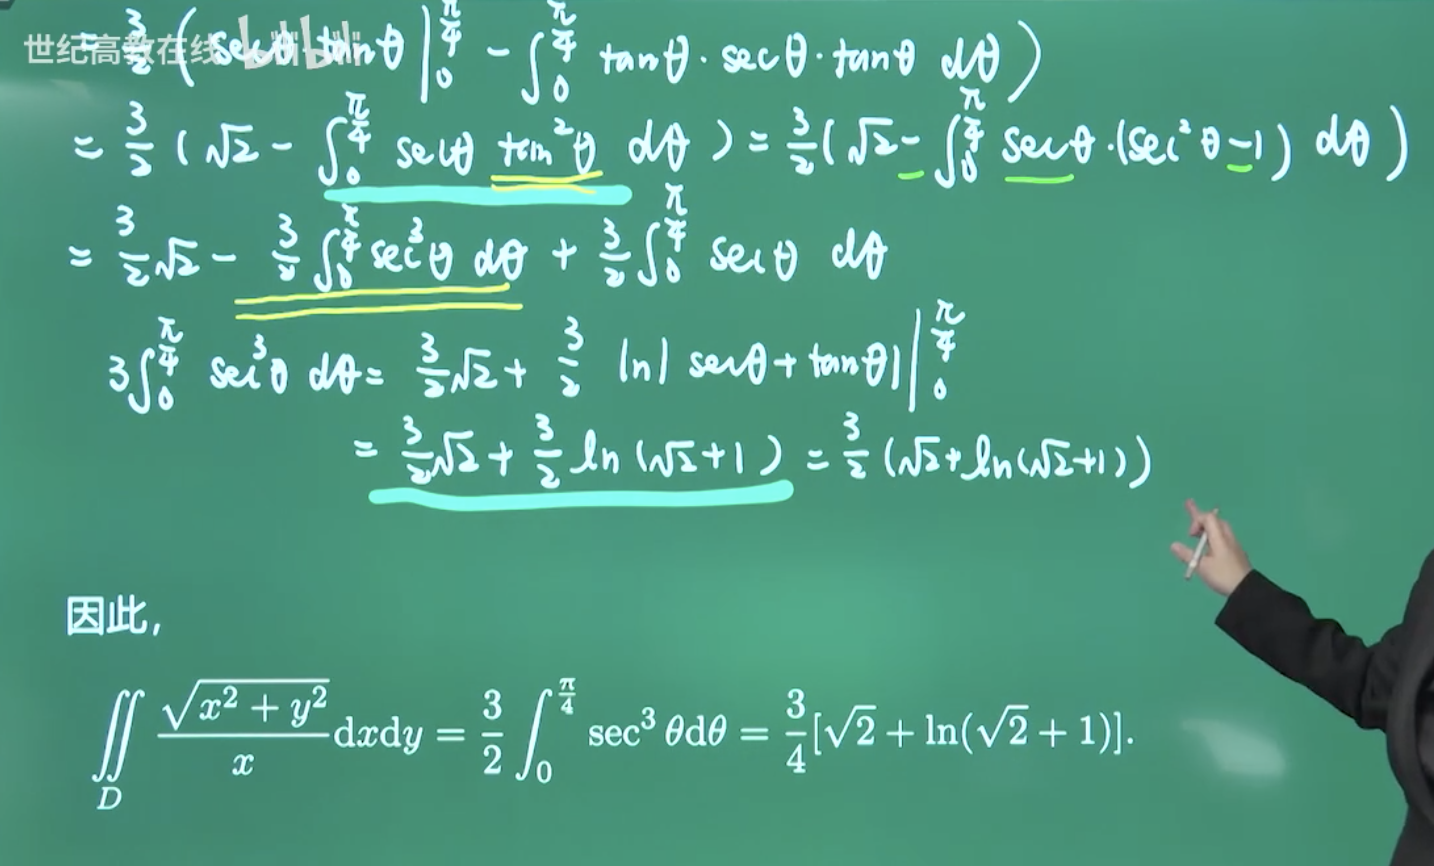 世纪高教在线 bilibili
= 3/2 ( secθ tanθ |_0^{π/4} - ∫_0^{π/4} tanθ · secθ · tanθ dθ )
= 3/2 ( √2 - ∫_0^{π/4} secθ tan²θ dθ ) = 3/2 ( √2 - ∫_0^{π/4} secθ · (sec²θ - 1) dθ )
= 3/2 √2 - 3/2 ∫_0^{π/4} sec³θ dθ + 3/2 ∫_0^{π/4} secθ dθ
3∫_0^{π/4} sec³θ dθ = 3/2 √2 + 3/2 ln|secθ + tanθ| |_0^{π/4}
= 3/2 √2 + 3/2 ln(√2+1) = 3/2 (√2 + ln(√2+1))
因此,
∬_D √(x² + y²)/x dxdy = 3/2 ∫_0^{π/4} sec³ θdθ = 3/4 [√2 + ln(√2 + 1)].